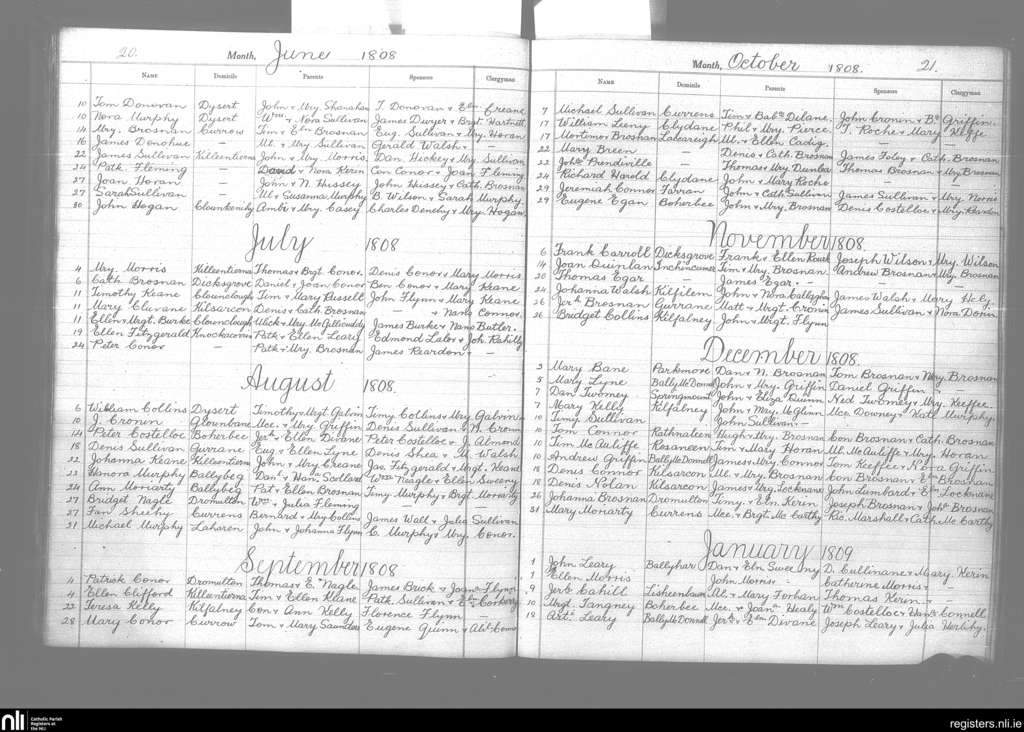 20.
Month, June 1808
Name Domicile Parents Sponsors Clergyman
10 Tom Donovan Dysert John & Mry. Shanahan T. Donovan & Eln. Creane
10 Nora Murphy Dysert Wm & Nora Sullivan James Dwyer & Brgt Hartnett
14 Mry. Brosnan Currow Tim & Eln Brosnan Eug. Sullivan & Mry. Horan
16 James Donohue — Ml. & Mry Sullivan Gerald Walsh & —
22 James Sullivan Killeentierna John & Mry. Morris Dan. Hickey & Mry. Sullivan
24 Patk. Fleming — David & Nora Kerin Con Conor & Joan Fleming
27 Joan Horan — John & N. Hussey John Hussey & Cath. Brosnan
27 Sarah Sullivan — Ml & Susanna Murphy B. Wilson & Sarah Murphy
30 John Hogan Ambr & Mry. Casey Charles Denehy & Mry. Hogan
July 1808
4 Mry. Morris Killeentierna Thomas & Brgt Conor Denis Conor & Mary Morris
6 Cath Brosnan Dicksgrove Daniel & Joan Conor Ben Conor & Mary Keane
11 Timothy Keane Clounclough Tim & Mary Russell John Flynn & Mary Keane
11 Mary Cluvane Kilsarcon Denis & Cath. Brosnan — & Nano Connor.
11 Ellen & Mgt. Burke Clounclough Ulick & Mry. McGillicuddy James Burke & Nano Butler.
19 Ellen Fitzgerald Knockaconor Patk & Ellen Leary Edmond Lalor & Joh. Rahilly
24 Peter Conor — Patk & Mry. Brosnan James Reardon & —
August 1808.
6 William Collins Dysert Timothy & Mgt Galvin Timy Collins & Mry. Galvin
10 J. Cronin Glounbane Mce. & Mry Griffin Denis Sullivan & N. Cronin
14 Peter Costelloe Boherbee Jerh. & Ellen Divane Peter Costelloe & J. Almond
18 Denis Sullivan Gurrane Eug. & Ellen Lyne Denis Shea & M. Walsh
22 Johanna Keane Killeentierna John & Mry. Creane Jas. Fitzgerald & Mrgt. Keane
23 Honora Murphy Ballybeg Danl & Han. Scollard Wm Neagle & Ellen Sweeny
24 Ann Moriarty Ballybeg Pat & Ellen Brosnan Timy Murphy & Brgt. Moriarty
27 Bridget Nagle Dromulton Wm & Julia Fleming — —
27 Fan Sheehy Currens Bernard & Mry Collins James Wall & Julia Sullivan
31 Michael Murphy Laharen John & Johanna Flynn C. Murphy & Mry. Conor.
September 1808
4 Patrick Conor Dromulton Thomas & E. Nagle James Brick & Joana Flynn
4 Ellen Clifford Killeentierna Tim & Ellen Klane Patk. Sullivan & Eln Corkery
22 Teresa Kelly Kilfalney Con & Ann Kelly Florence Flynn —
28 Mary Conor Currow Tom & Mary Saunders Eugene Quinn &
Month, October 1808. 21.
Name Domicile Parents Sponsors Clergyman
7 Michael Sullivan Currens Tim & Babe Delane John Cronin & Bt. Griffin.
7 William Leeny Clydane Phil & Mry. Pierce T. Roche & Mary Keffe
17 Mortimer Brosnan Lacareigh Ml. & Ellen Cadig. —
22 Mary Breen — Denis & Cath. Brosnan James Foley & Cath. Brosnan
22 Prendiville — Thomas & Mry. Dunlea Thomas Brosnan & Mry. Brosnan
24 Richard Harold Clydane John & Mary Roche —
29 Jeremiah Connor Farran John & Cath Sullivan James Sullivan & Mry. Norris
29 Eugene Egan Boherbee John & Mry. Brosnan Denis Costelloe & Mry. Reardon
November 1808.
6 Frank Carroll Dicksgrove Frank & Ellen Joseph Wilson & Mry. Wilson
14 Joan Quinlan Inchincumer Tim & Mry. Brosnan Andrew Brosnan & Mry. Brosnan
20 Thomas Egar. — James Egar. — —
24 Johanna Walsh Kilfilem John & Nora Callaghan James Walsh & Mary Hely.
26 Jerh. Brosnan Gurrane Matt & Mrgt. Cronin James Sullivan & Nora Doran
26 Bridget Collins Kilfalney John & Mrgt. Flynn
December 1808.
3 Mary Bane Parkmore Dan & N. Brosnan Tom Brosnan & Mry. Brosnan
5 Mary Lyne BallyMcDonnell John & Mry. Griffin Daniel Griffin
7 Danl Twomey Springmount John & Eliza Quinn Ned Twomey & Mry. Keeffee
7 Mary Kelly Kilfalney John & Mry. McGlinn Mce. Downey & Kate Murphy.
10 Timy Sullivan John Sullivan. —
10 Tom Connor Rathnaleen Hugh & Mry. Brosnan Con Brosnan & Cath. Brosnan
10 Tim McAuliffe Rosaneen Tim & Mary Horan Ml. McAuliffe & Mry. Horan
10 Andrew Griffin BallyMcDonnell James & Mry. Connor Tom Keeffee & Nora Griffin
18 Denis Connor Kilsarcon Ml & Mry. Brosnan Con Brosnan & Eln Brosnan
18 Denis Nolan Kilsarcon James & Mry. Locknane John Lumbard & Eln Locknane
26 Johanna Brosnan Dromulton Timy. & Eln. Kerin Joseph Brosnan & Joh. Brosnan
31 Mary Moriarty Currens Mce. & Brgt. McCarthy Ric. Marshall & Cath McCarthy
January 1809
1 John Leary Ballyhar Dan & Eln Sweeny D. Cullinane & Mary. Kerin
7 Ellen Morris John Morris — Catherine Morris. —
9 Jerh Cahill Lisheenbawn Ml. & Mary Forhan Thomas Kerin. —
10 Mrgt Tangney Boherbee Mce. & Joan Healy Wm Costelloe & Connell
18 Art. Leary BallyMcDonnell Jerh. & Eln Divane Joseph Leary & Julia Herlihy.
nli Catholic Parish Registers at the NLI
registers.nli.ie